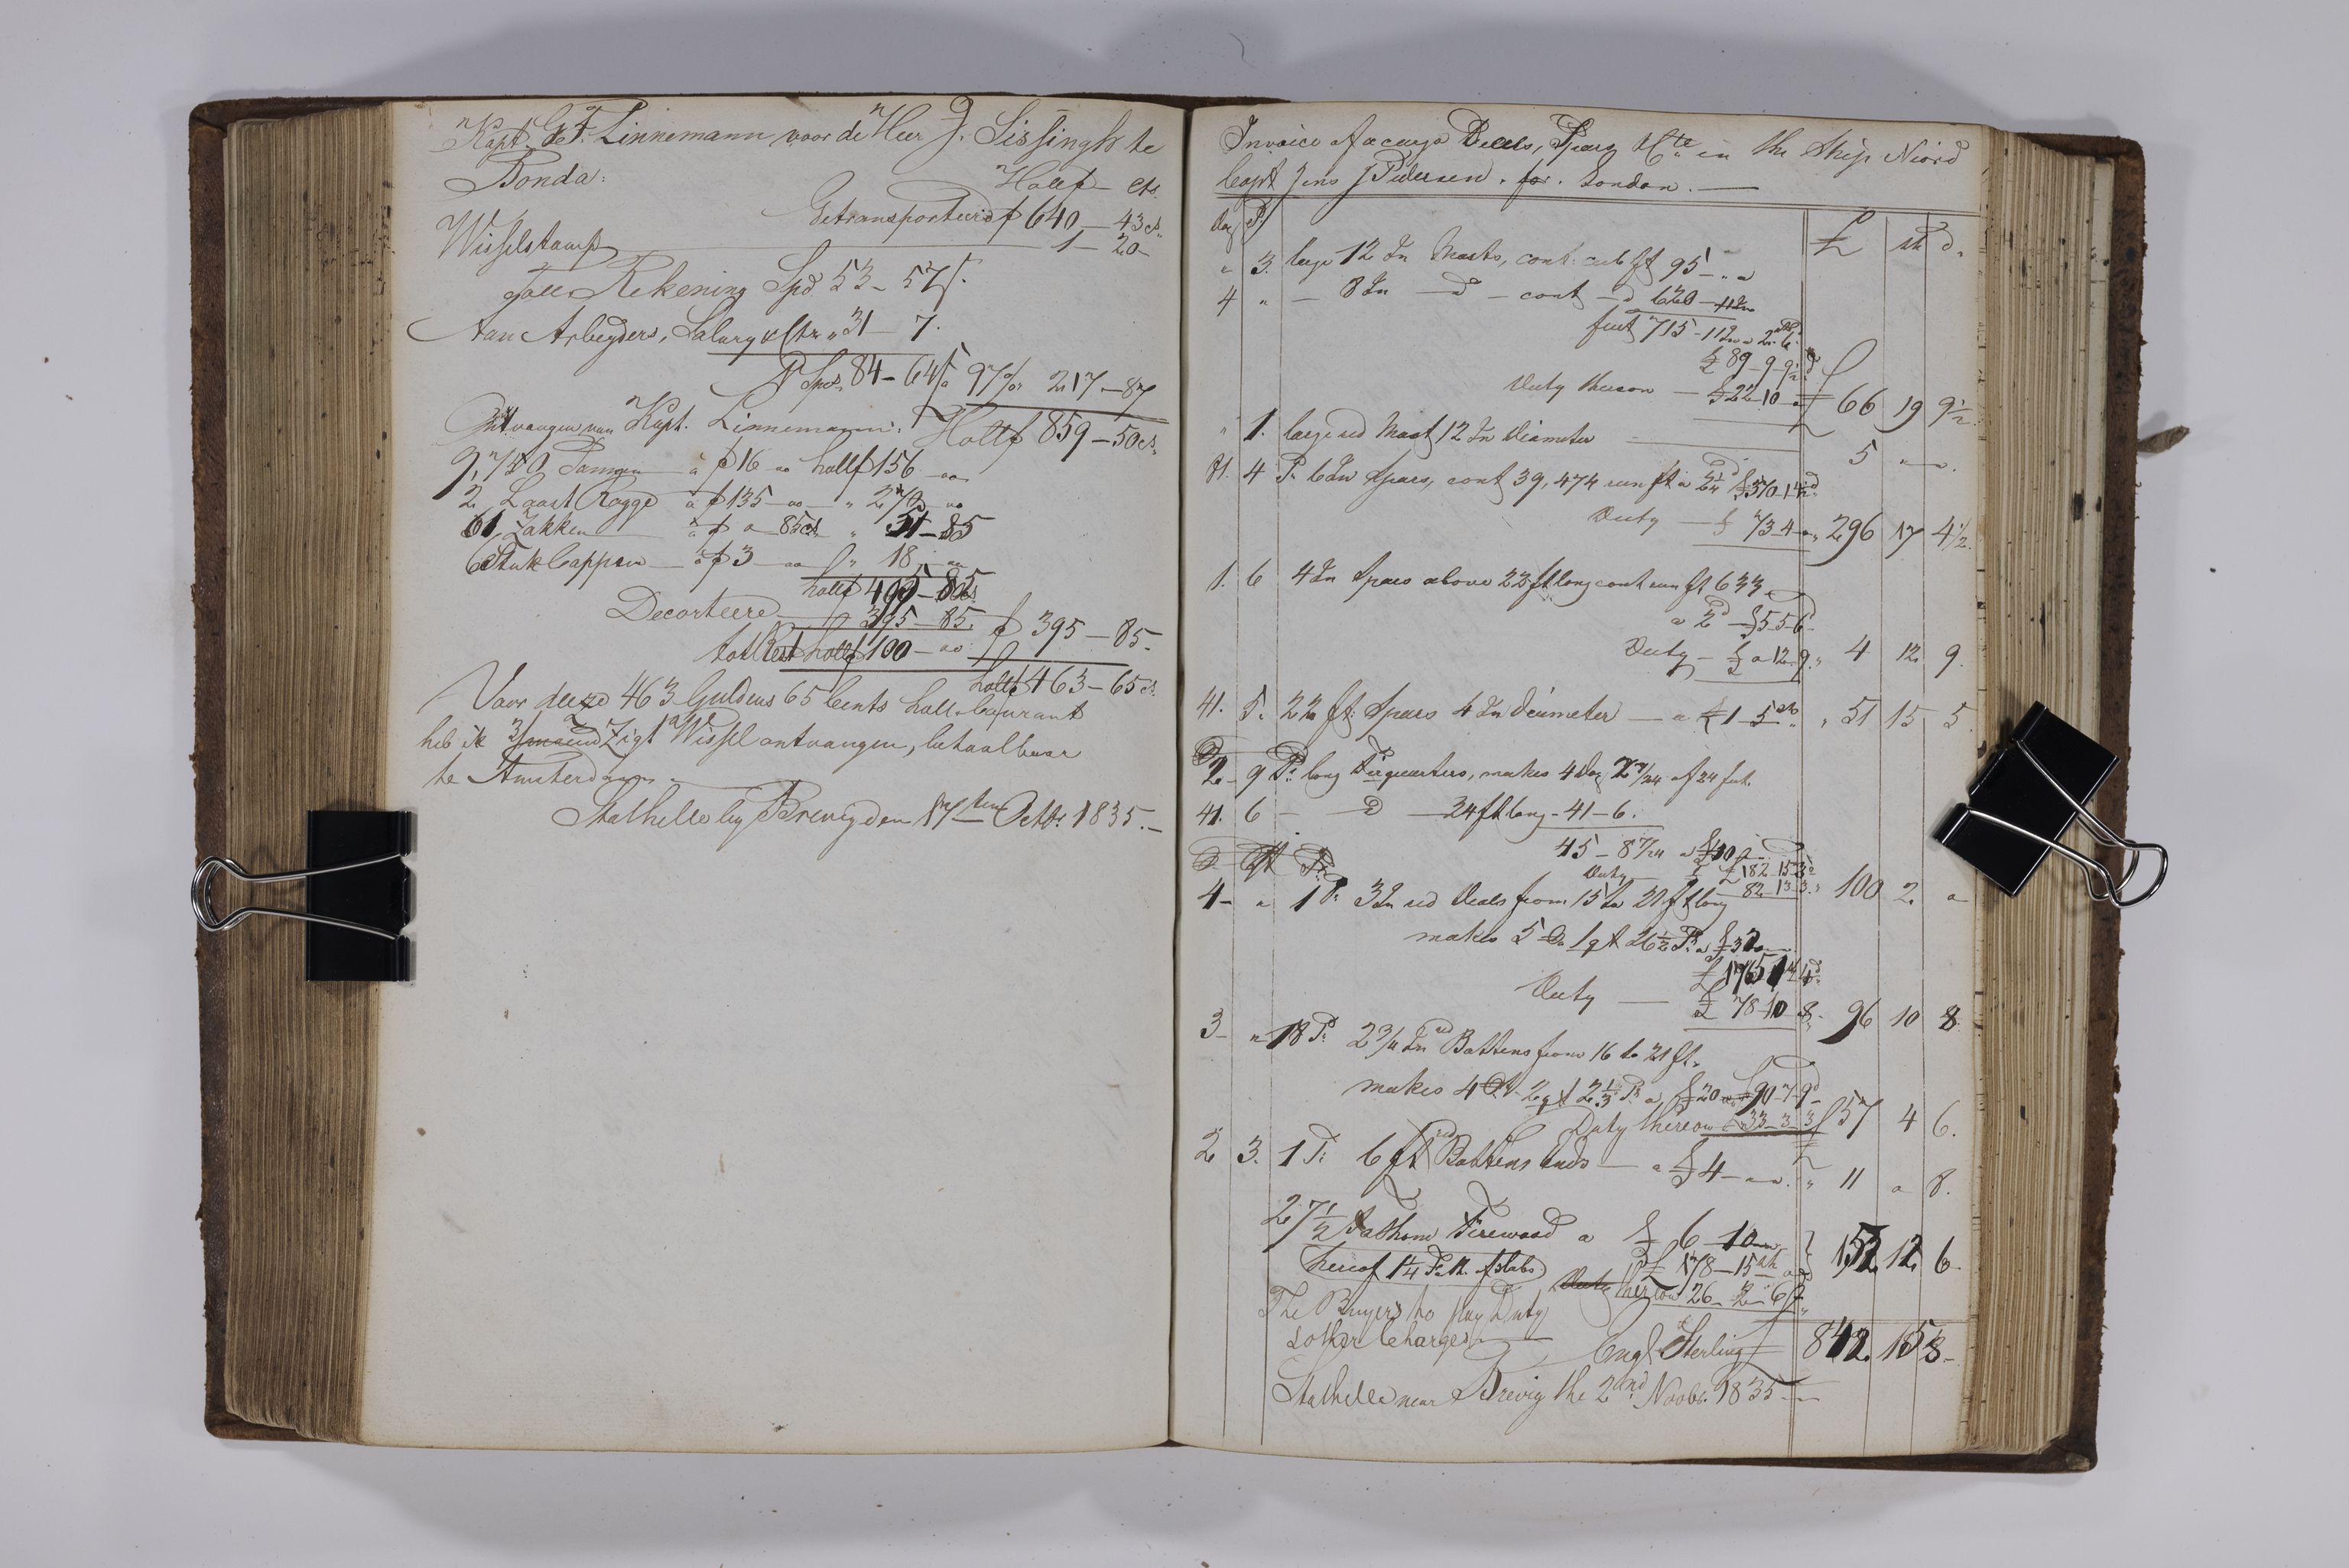 Kapt. G. F. Linnemann voor de Heer J. Sissingh te
Bonda:
Hollf — cts.
Getransporteerd f 640 — 43 cts.
Wisselstamp 1 — 20 —
Toll Rekening Spd. 53 — 57 ſ.
Aan Arbeyders, Salary &c. " 31 — 7.
Spd. 84 — 64 ſ a 97 % 217 — 87
Hollf 859 — 50 cts.
Ontvangen van Kapt. Linnemann:
9, Tonnen a f 16 " hollf 156 "
2 Laast Rogge a f 135 " " 270 "
61 Zakken a f " 85 cts. " 51 — 85
6 Stuk Cappen a f 3 " " 18 "
hollf 495 — 85 cts.
Decorteere 395 — 85. f 395 — 85.
Rest hollf 100 — "
hollf 463 — 65 cts.
Voor deeze 463 Guldens 65 Cents holl. Courant
heb ik 3/maand Zigt Wissel ontvangen, betaalbaar
te Amsterdam.
Stathelle by Brevig den 17ten Octbr. 1835.—
Invoice of a cargo Deels, Spars &cte. in the Ship Niord
Capt Jens J Pedersen. for. London. —
£ sh d.
" 3. large 12 In Masts, cont: cub ft 95 — " "
4 " — 8 In — d — cont — d 620 — 11 In
feet 715 — 11 In a 2 sh. 6.
£ 89 — 9 — 9½ d
Duty thereon — £ 22 — 10 — " £ 66 19 9½.
" 1. large red Mast 12 In Diameter — 5 " — ".
81. 4 P. 6 In Spars, cont 39,474 run ft a 2¼ d £ 370 — 1 — 4½ d
Duty — £ 73 — 4 — " " 296 17 4½.
1. 6 4 In Spars above 22 ft long cont run ft 633
a 2d — £ 5 — 5 — 6
Duty — £ " 12 — 9. " 4 12. 9.
41. 5. 22 ft: Spars 4 In Diameter — a £ 1 — 5 sh " " 51 15 5
2 — 9 P. long Firquarters, makes 4 Doz 2 7/24 of 24 feet.
41. 6 — D — 24 ft long — 41 — 6.
45 — 8 7/24 a £
Duty £ 182 15 3 d
82 — 13 — 3. " 100 2. "
4 — " 1 P. 3 In red Deals from 15 to 21 ft long
makes 5 1 qt 26½ P. a £
£ 4 d
Duty — £ 78 — 10 — 8. 96 10 8
3 — " 18 P. 2¾ In red Battens from 16 to 21 ft.
makes 4 2 qt 2⅓ P. a £ 20 " £ 90 — 7 — 9 d
Duty thereon £ 33 — 3 — 3 £ 57 4 6.
2 3. 1 P. 6 ft red Battens Ends — a £ 4 — " ". " 11 " 8.
27½ Fathom Firewood a £ 6 — 10 —
hereof 1¼ Fath. of slabs) £ 178 — 15 sh " d } 152 12. 6
thereon 26 — 2 — 6
The Buyers to pay Duty
& other Charges.
Engl. Sterling £ 842. 15 8 —
Stathelle near Brevig the 2nd Novbr. 1835 —